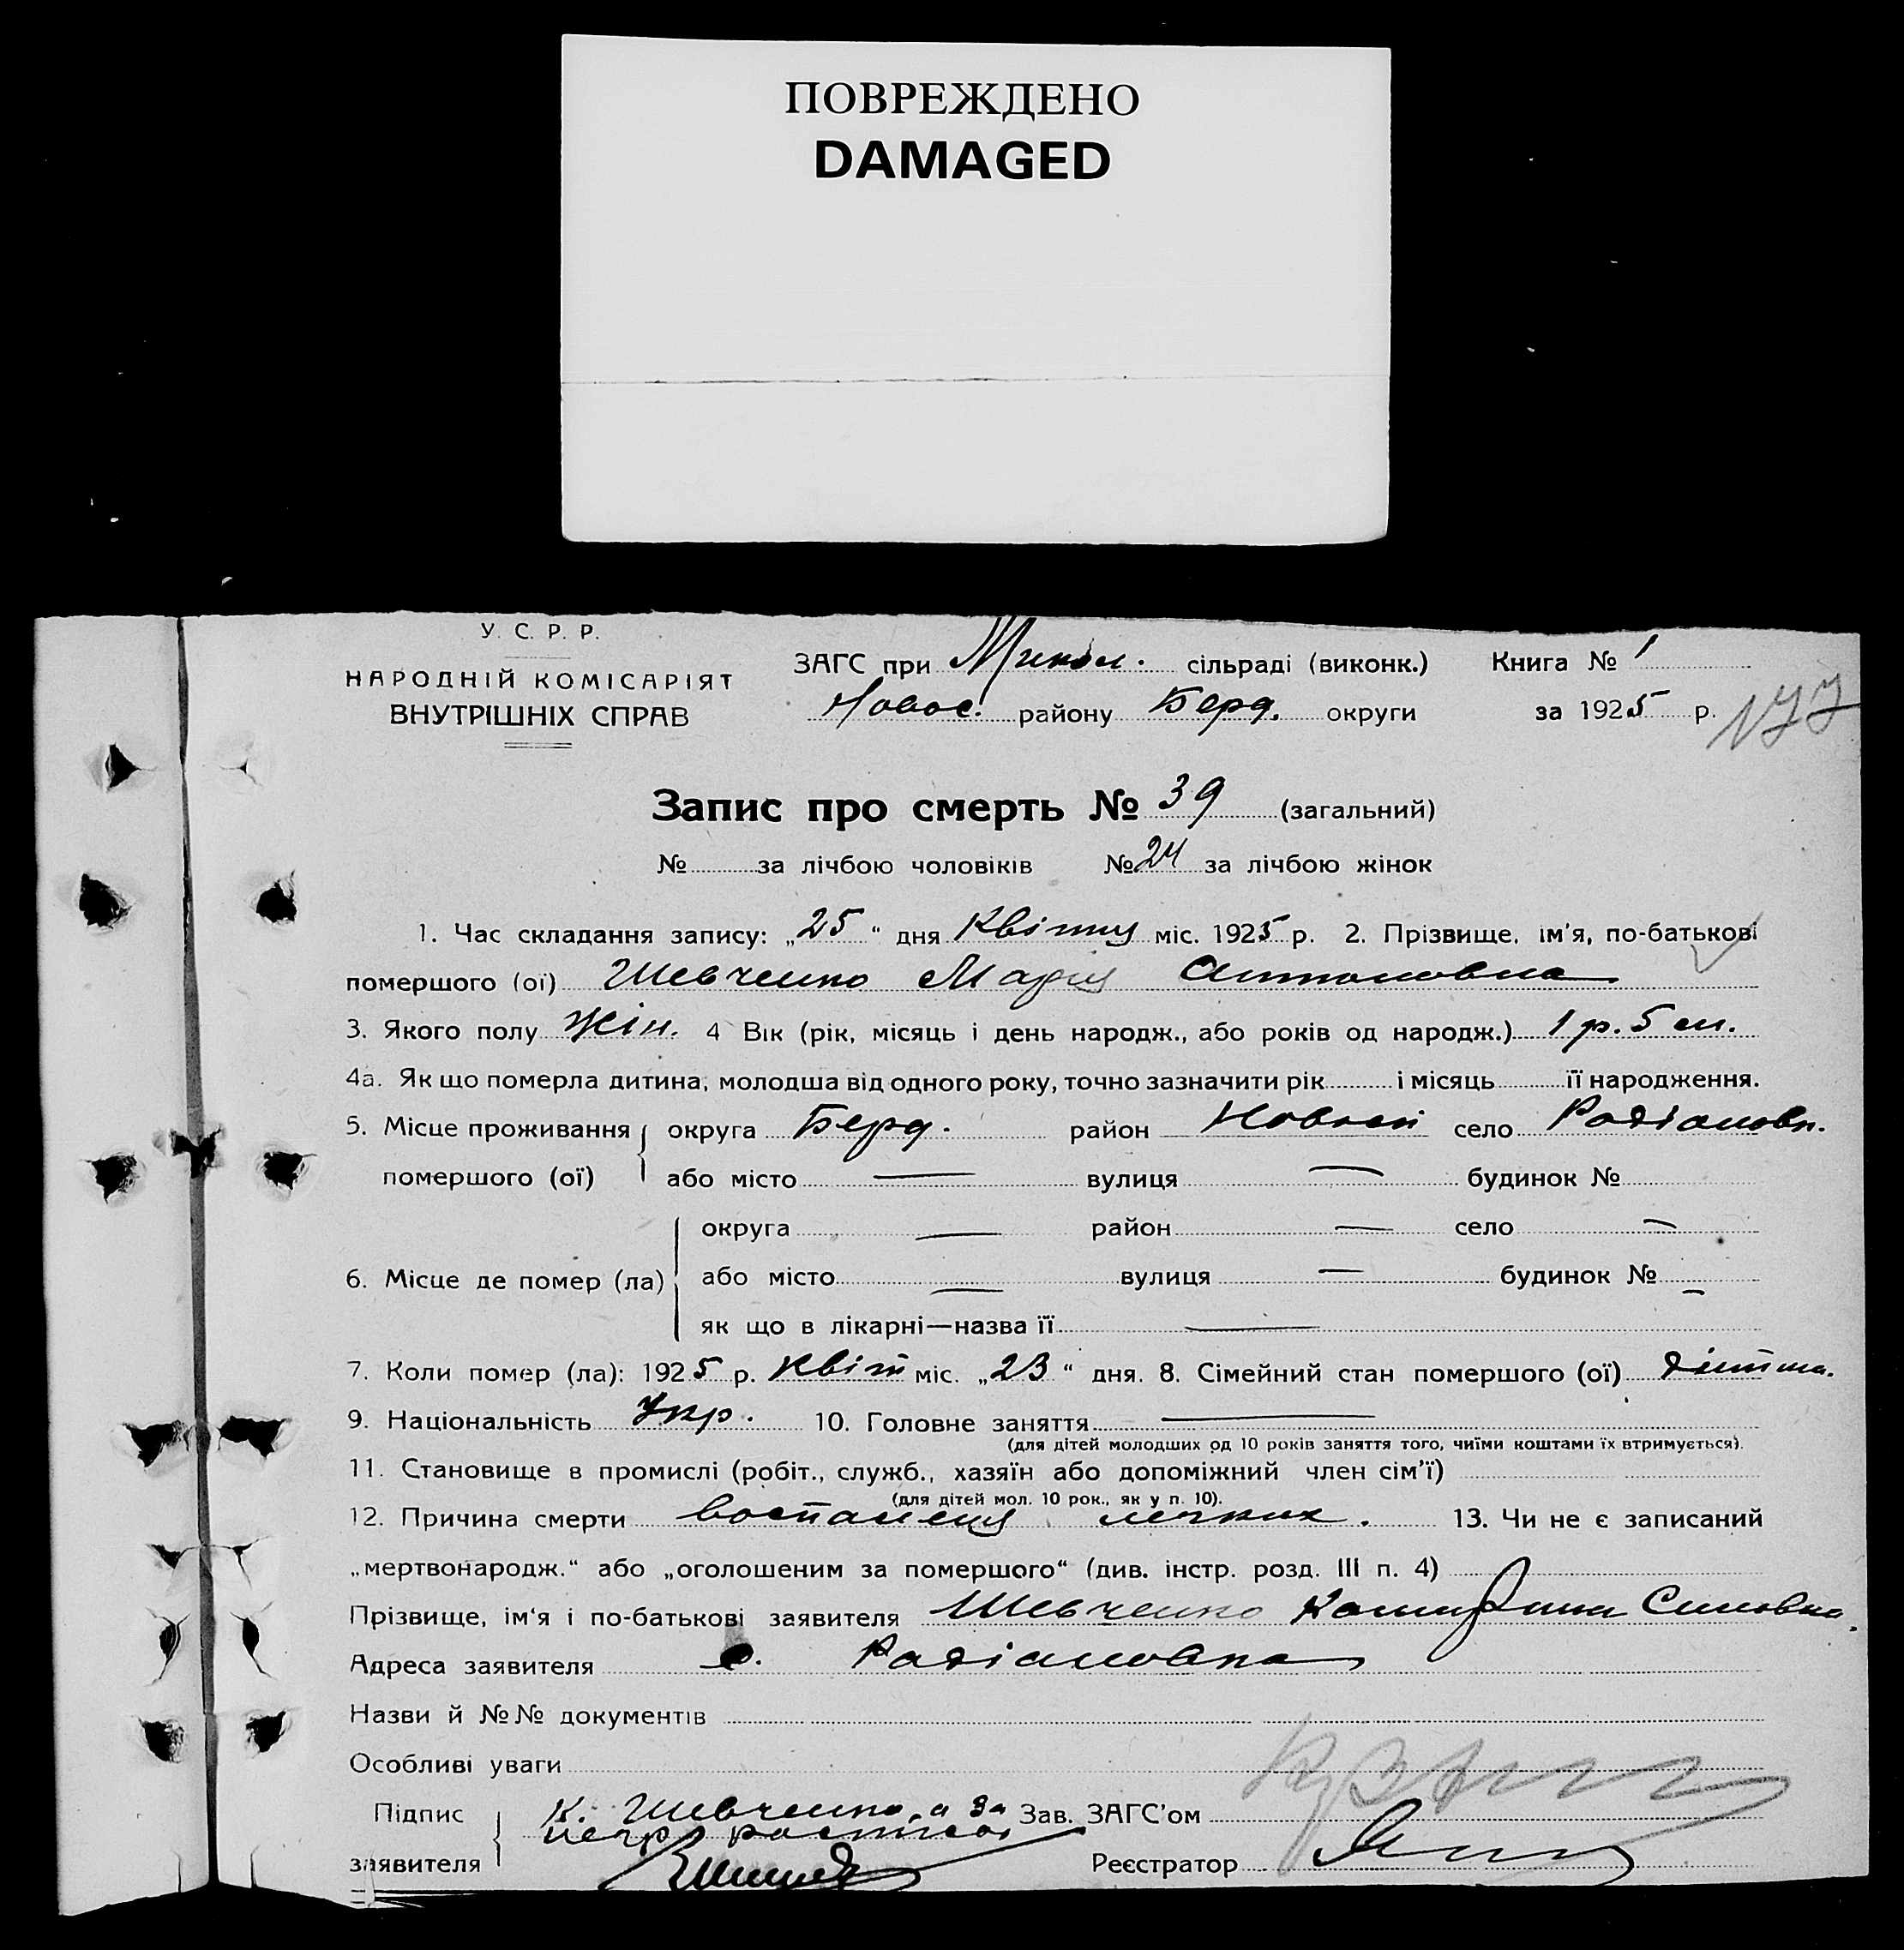 ПОВРЕЖДЕНО
DAMAGED
У. С. Р. Р.
НАРОДНІЙ КОМІСАРІЯТ
ВНУТРІШНІХ СПРАВ
ЗАГС при Микол. сільраді (виконк.) Книга № 1
Новос. району Берд. округи за 1925 р.
177
Запис про смерть № 39 (загальний)
№ за лічбою чоловіків № 24 за лічбою жінок
1. Час складання запису: „25“ дня Квітня міс. 1925 р. 2. Прізвище, ім'я, по-батькові
помершого (ої) Шевченко Марія Антоновна
3. Якого полу Жін. 4 Вік (рік, місяць і день народж., або років од народж.) 1 р. 5 м.
4а. Як що померла дитина, молодша від одного року, точно зазначити рік і місяць її народження.
5. Місце проживання округа Берд. район село Радіановк.
помершого (ої) або місто — вулиця — будинок №
округа — район — село —
6. Місце де помер (ла) або місто — вулиця — будинок № —
як що в лікарні—назва її —
7. Коли помер (ла): 1925 р. Квіт міс. „23“ дня. 8. Сімейний стан помершого (ої) дитина.
9. Національність Укр. 10. Головне заняття —
(для дітей молодших од 10 років заняття того, чиїми коштами їх втримується).
11. Становище в промислі (робіт., служб., хазяїн або допоміжний член сім'ї)
(для дітей мол. 10 рок., як у п. 10).
12. Причина смерти воспаления легких. 13. Чи не є записаний
„мертвонародж.“ або „оголошеним за помершого“ (див. інстр. розд. III п. 4)
Прізвище, ім'я і по-батькові заявителя Шевченко
Адреса заявителя с. Радіановка
Назви й №№ документів
Особливі уваги
Підпис К. Шевченко, а за Зав. ЗАГС'ом
заявителя Реєстратор